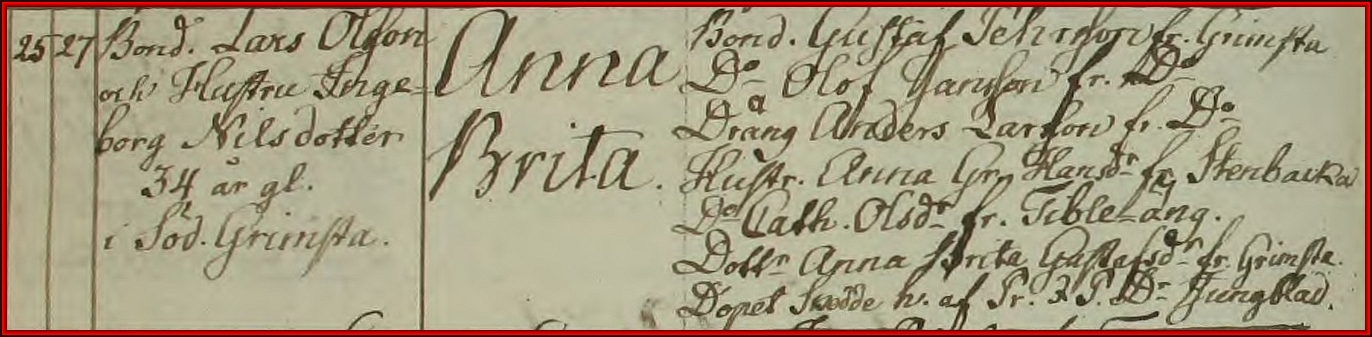 25 27 Bond. Lars Olsson
och Hustru Inge-
borg Nilsdotter
34 år gl.
i Söd. Grimsta.
Anna
Brita.
Bond. Gustaf Jehrsson fr. Grimsta
Do Olof Jansson fr. Do
Dräng Anders Larsson fr. Do
Hustr. Anna Gr. Hansdr fr. Stenbacka
Do Cath. Olsdr fr. Tible-äng.
Dottr Anna Brita Gustafsdr fr. Grimsta.
Dopet skedde h. af Pr. P. Dr Ljungblad.